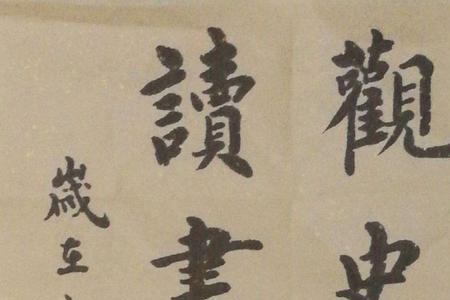 觀史
讀書
歲在